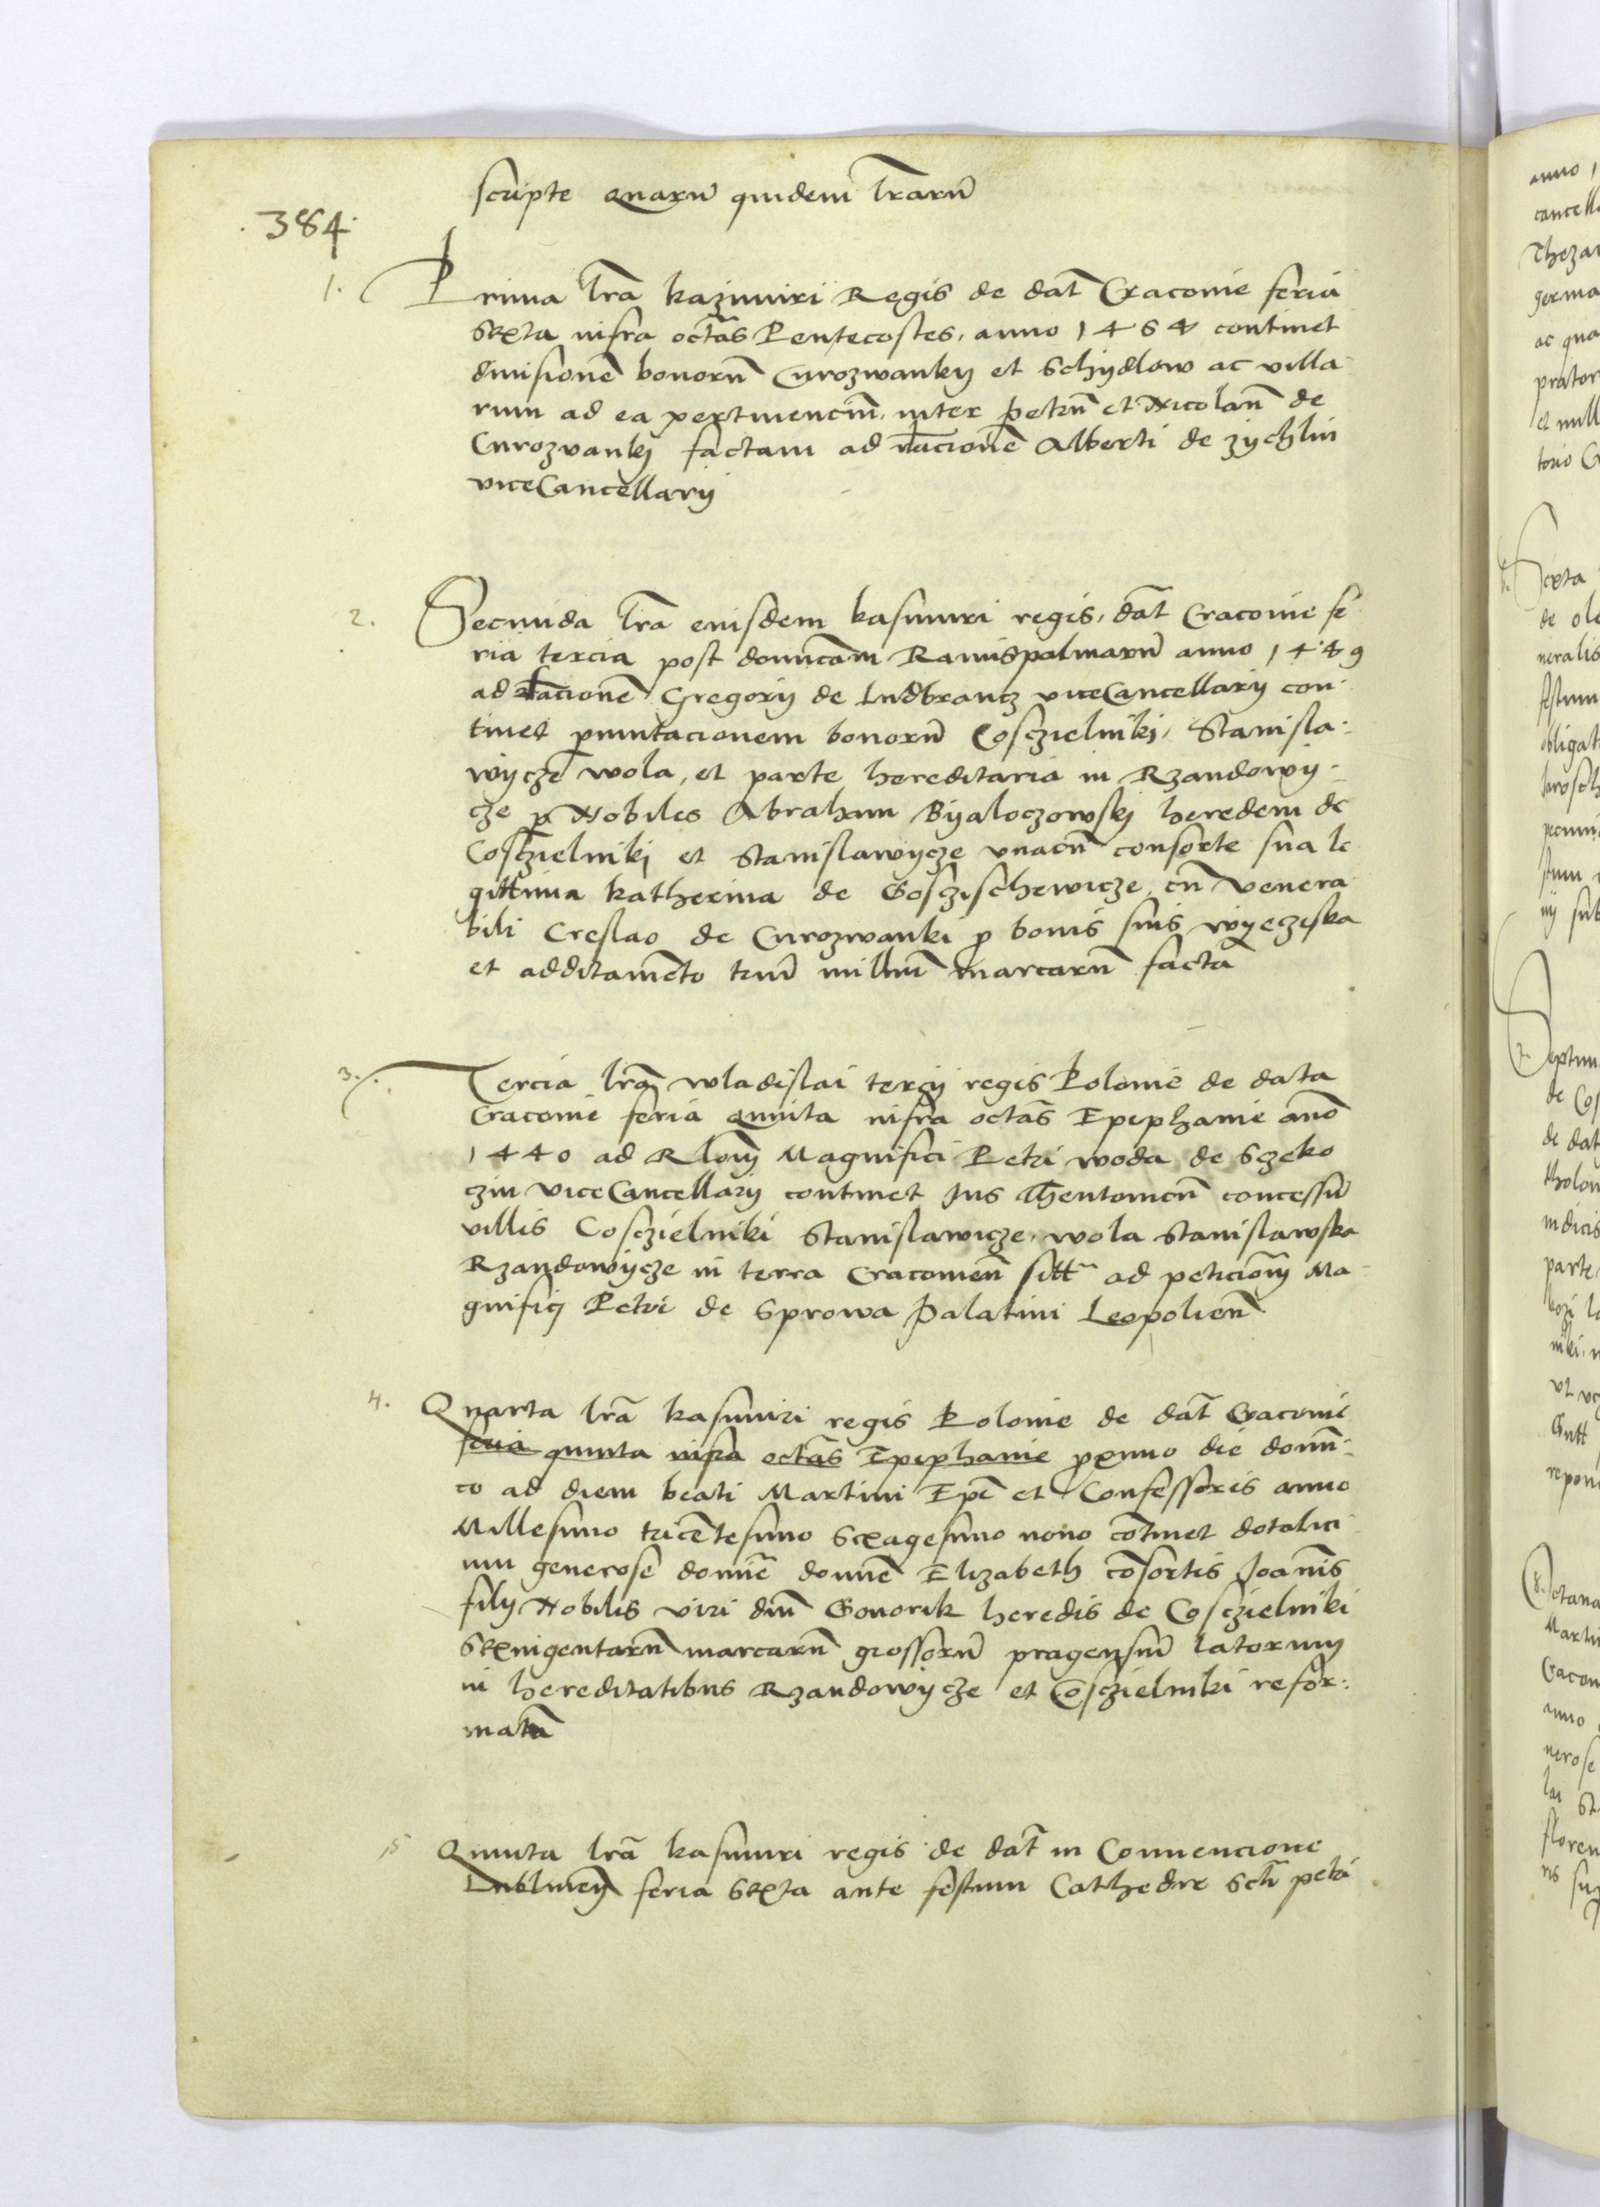 scripte Quarũ quidem lr̃arũ
384
1. Prima lr̃a kazimiri Regis de dat̃ Cracovie feria
Sexta infra octãs Pentecostes, anno 1464 continet
divisionẽ bonorũ Curozwanky et Schydlow ac villa
rum ad ea pertinenciũ, inter petrũ et Nicolaũ de
Curozvankj factam ad rl̃acionẽ Alberti de zychlin
viceCancellarij
2. Secunda lr̃a eiusdem kasimiri regis, dat̃ Cracovie fe
ria tercia post domicãm Ramispalmarũ anno 1449
ad rl̃acionẽ Gregorij de Ludbrancz viceCancellarij con
tinet p̱mutacionem bonorũ Cosczielnikj, Stanisla:
wyczẽ wola, et parte hereditaria in Rzandowy:
cze p̱ Nobiles Abraham Byaloczowskj heredem de
Cosczielnikj et Stanislawycze unacũ consorte sua le
gittima katherina de Gosczischewicze, cũ Venera
bili Creslao de Curozwanki p̱ bonis suis wyecziska
et additamẽto triũ milliũ marcarũ factã
3. Tercia lr̃a wladislai tercij regis Polonie de data
Cracovie feria Quinta infra octãs Epiphanie año
1440 ad Rl̃oñm Magnifici Petri woda de Sczeko
czin viceCancellarij continet Jus Thentonicũ concessũ
villis Cosczielniki Stanislawicze, wola Stanislawska
Rzandowycze in terra Cracovieñ sitt̃ ad peticioñm Ma
gnificj Petri de Sprowa Palatini Leopolieñ
4. Quarta lr̃a kasimiri regis Polonie de dat̃ Cracovie
feria quinta infra octãs Epiphanie p̱ximo die domi:
co ad diem beati Martini Ep̃i et Confessoris anno
Millesimo tricẽtesimo Sexagesimo nono cõtinet dotalici
um generose domiẽ domiẽ Elizabeth cõsortis Joañis
filij Nobilis viri dñi Gonorik heredis de Cosczielniki
Sexingentarũ marcarũ grossorũ pragensiũ latorum
in hereditatibus Rzandowycze et Cosczielniki refor:
matã
5 Quinta lr̃a kasimiri regis de dat̃ in Convencione
Lublineñ feria Sexta ante festum Cathedre Sct̃i petri